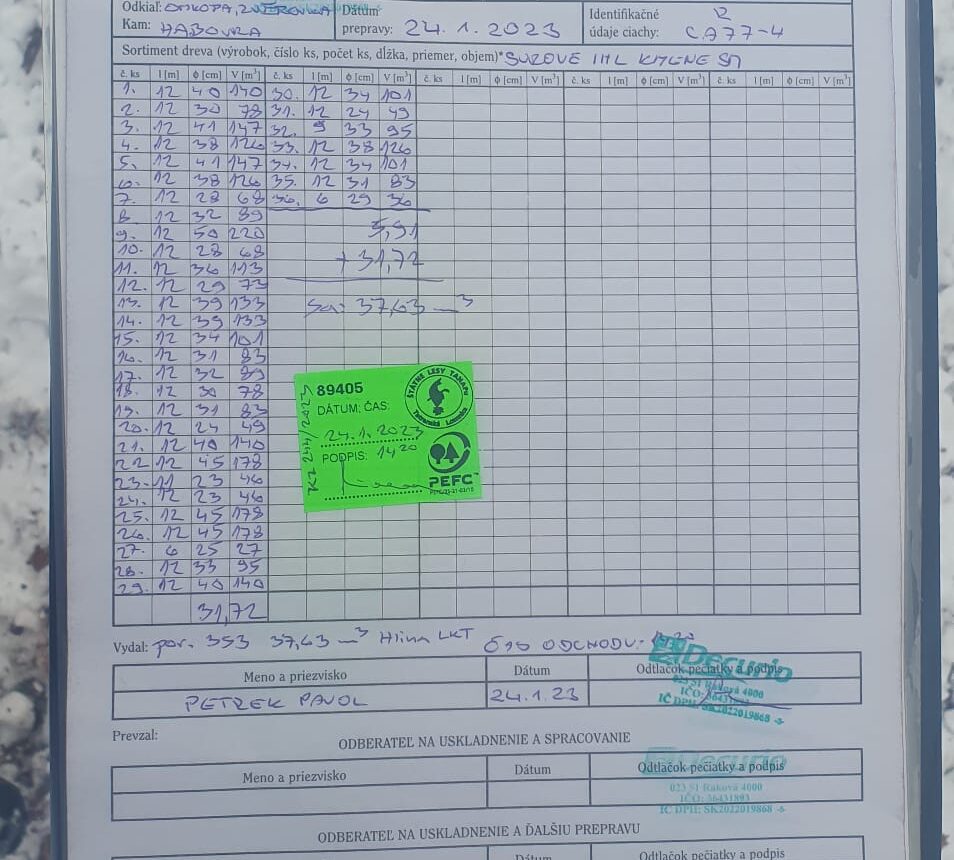 Odkiaľ: ZVEROVKA Dátum prepravy: 24.1.2023 Identifikačné údaje ciachy: R CA77-4
Kam: HABOVKA
Sortiment dreva (výrobok, číslo ks, počet ks, dĺžka, priemer, objem)* SUROVÉ IHL KMENE SM
č. ks l [m] ϕ [cm] V [m³] č. ks l [m] ϕ [cm] V [m³] č. ks l [m] ϕ [cm] V [m³] č. ks l [m] ϕ [cm] V [m³] č. ks l [m] ϕ [cm] V [m³]
1. 12 40 140 30. 12 34 101
2. 12 30 78 31. 12 24 49
3. 12 41 147 32. 9 33 95
4. 12 38 126 33. 12 38 126
5. 12 41 147 34. 12 34 101
6. 12 38 126 35. 12 31 83
7. 12 28 68 36. 6 29 36
8. 12 32 89
9. 12 50 220 5,91
10. 12 28 68 + 31,72
11. 12 36 113
12. 12 29 73
13. 12 39 133 37,63 m³
14. 12 39 133
15. 12 34 101
16. 12 31 83
17. 12 32 89
18. 12 30 78
19. 12 31 83
20. 12 24 49
21. 12 40 140
22 12 45 178
23. 11 23 46
24. 12 23 46
25. 12 45 178
26. 12 45 178
27. 6 25 27
28. 12 33 95
29. 12 40 140
31,72
89405
DÁTUM; ČAS:
24.1.2023
PODPIS: 14 20
KZ 244/2023
ŠTÁTNE LESY TANAPu
Tatranská Lomnica
PEFC
Vydal: por. 353 37,63 m³ Hlina LKT ČAS ODCHODU:
Meno a priezvisko Dátum Odtlačok pečiatky a podpis
PETREK PAVOL 24.1.23
Decurio
023 51 Raková 4000
IČO: 36431893
IČ DPH: SK2022019868
Prevzal:
ODBERATEĽ NA USKLADNENIE A SPRACOVANIE
Meno a priezvisko Dátum Odtlačok pečiatky a podpis
Decurio
023 51 Raková 4000
IČO: 36431893
IČ DPH: SK2022019868
ODBERATEĽ NA USKLADNENIE A ĎALŠIU PREPRAVU
Meno a priezvisko Dátum Odtlačok pečiatky a podpis